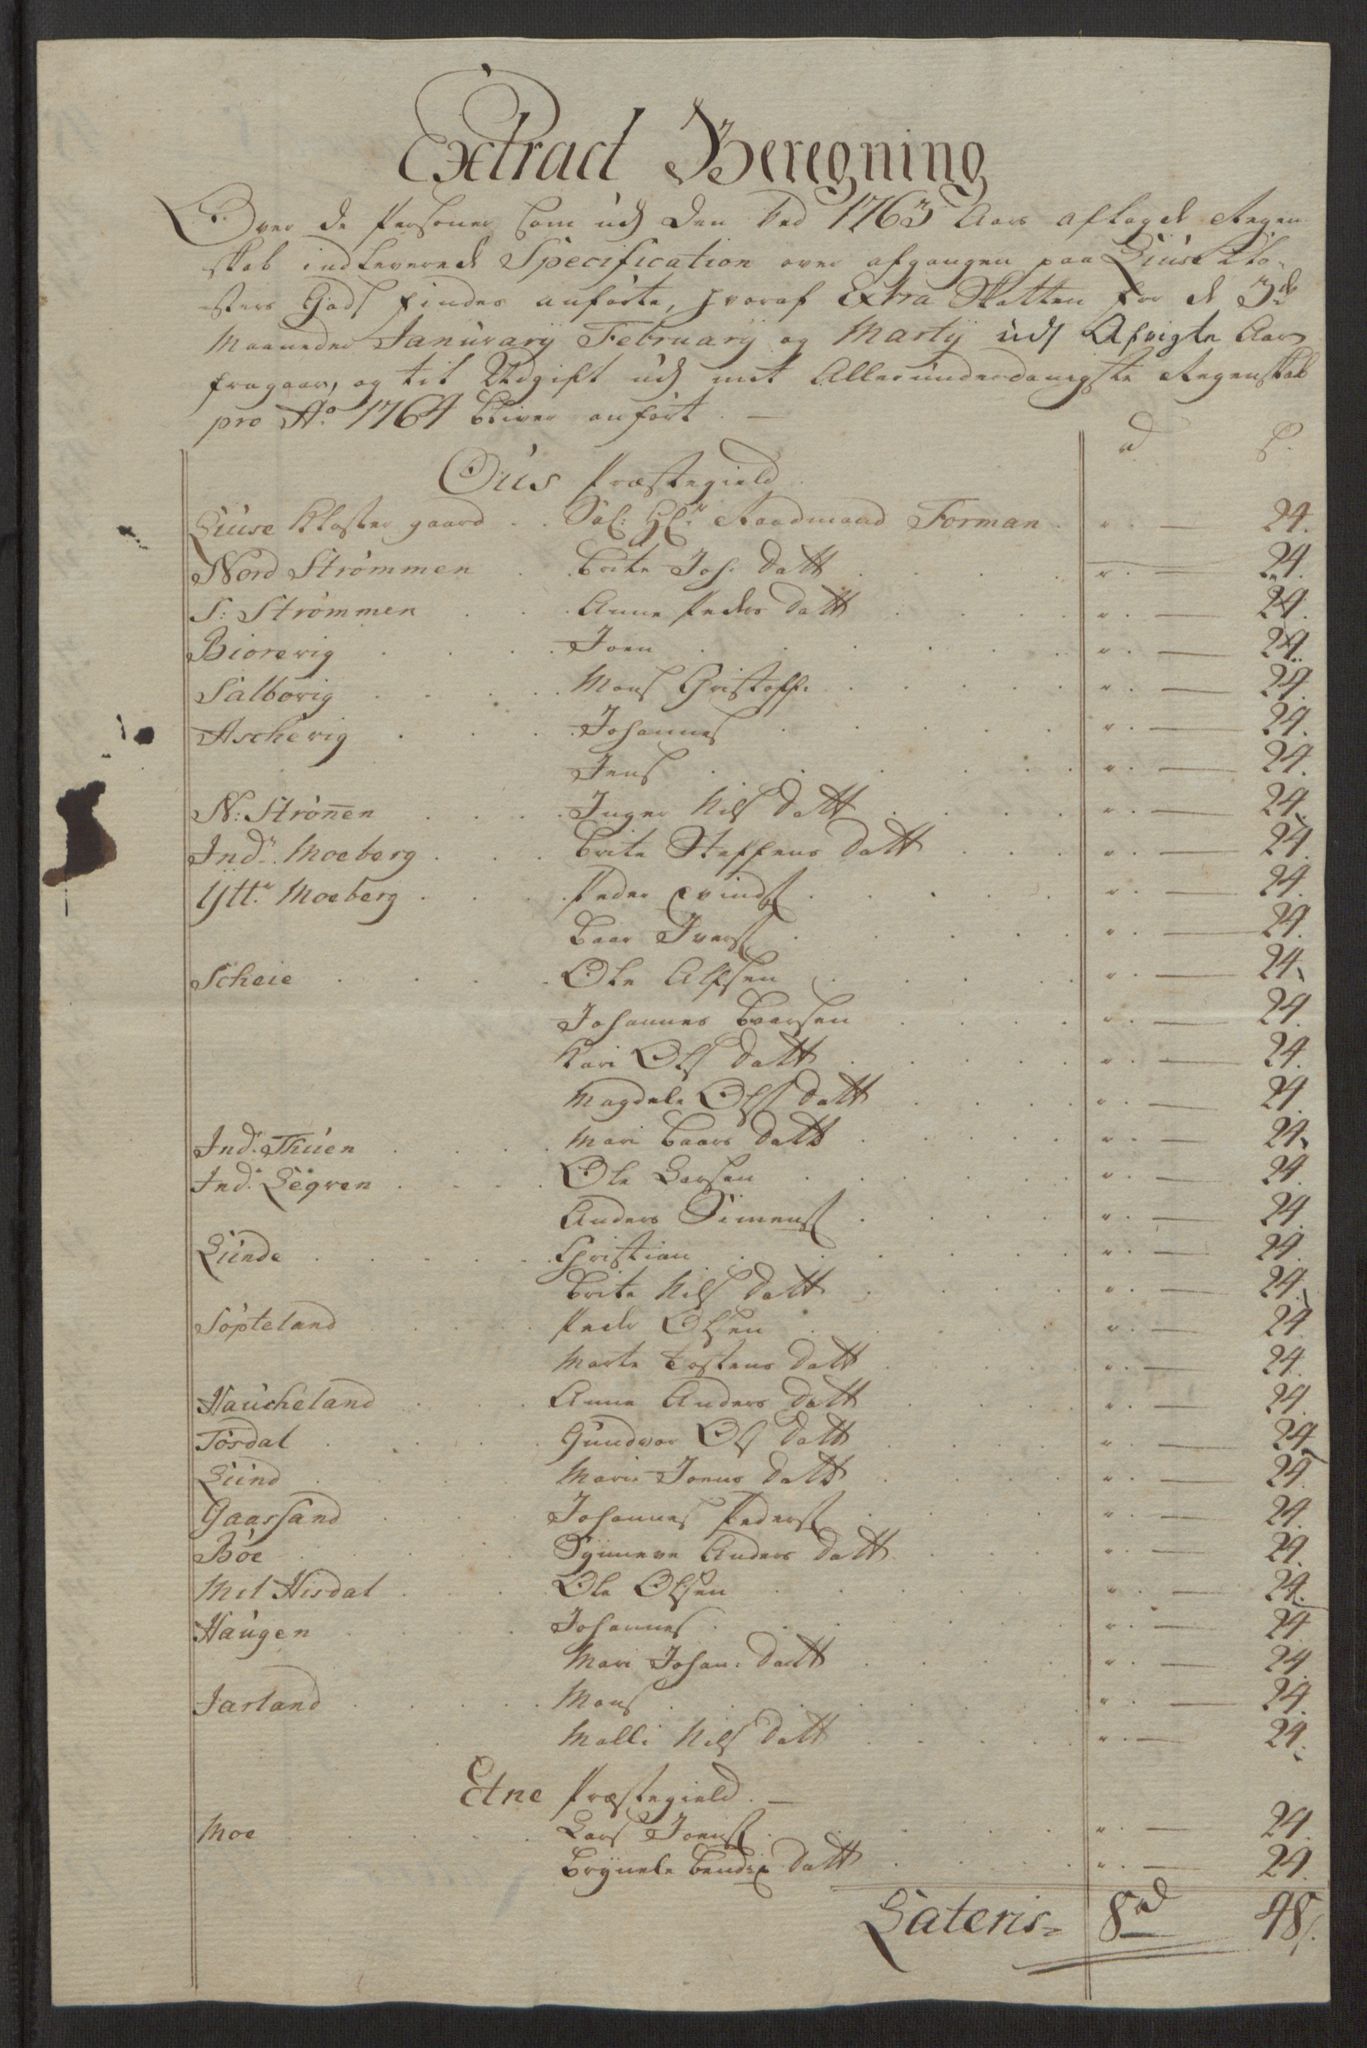 Extract Beregning
Over de Personer som udj den ved 1763 Aars aflagde Regen
skab indleverede Specification over afgangen paa Liuse Clo-
sters Gods findes anførte, hvoraf Extra Skatten for de 3de
Maaneder Januarÿ Februarÿ og Martÿ udj Afvigte Aar
fragaar, og til Udgift udj mit Allerunderdanigste Regenskab
pro Ao 1764 bliver anført. —
d ß.
Ous Præstegield.
Liuse Kloster gaard . . Sal: Hr. Raadmand Forman . " . — 24.
Nord Strømmen . Brite Joh. Datt . " . — 24.
S: Strømmen . . Anna Peders Datt . " . — 24.
Biorevig . . . . Joen . " . — 24.
Salbovig . . . . Mons Christoff: . " . — 24.
Aschevig . . . Johannes . " . — 24.
Jens . " . — 24.
N: Strøn̅en . . . . Inger Nils Datt . " . — 24.
Indr. Moeberg . . . Brite Steffens Datt . " . — 24.
Ÿttr. Moeberg . . . Peder Evinds . " . — 24.
Baar Ivers . " . — 24.
Scheie . . . . Ole Alfsen . " . — 24.
Johannes Baarsen . " . — 24.
Kari Ols Datt . " . — 24.
Magdele Ols Datt . " . — 24.
Ind. Thuen . . . . Mari Baars Datt . " . — 24.
Ind. Legren . . . . Ole Larsen . " . — 24.
Anders Simens . " . — 24.
Lunde . . . . Christian . " . — 24.
Brite Nils Datt . " . — 24.
Søpteland . . . Peder Olsen . " . — 24.
Marte Tostens Datt . " . — 24.
Haucheland . . . Anna Anders Datt . " . — 24.
Tosdal . . . . Gundvor Ols Datt . " . — 24.
Lund . . . . Mari Joens Datt . " . — 24.
Gaassand . . . Johannes Peders . " . — 24.
Bøe . . . . Synneve Anders Datt . " . — 24.
Mit Hisdal . . . Ole Olsen . " . — 24.
Haugen . . . . Johannes . " . — 24.
Mari Johan: Datt . " . — 24.
Jarland . . . . Mons . " . — 24.
Malli Nils Datt . " . — 24.
Etne Præstegield. —
Moe . . . . Lars Joens . " . — 24.
Brynele Bendix Datt . " . — 24.
Lateris= 8d 48ß.